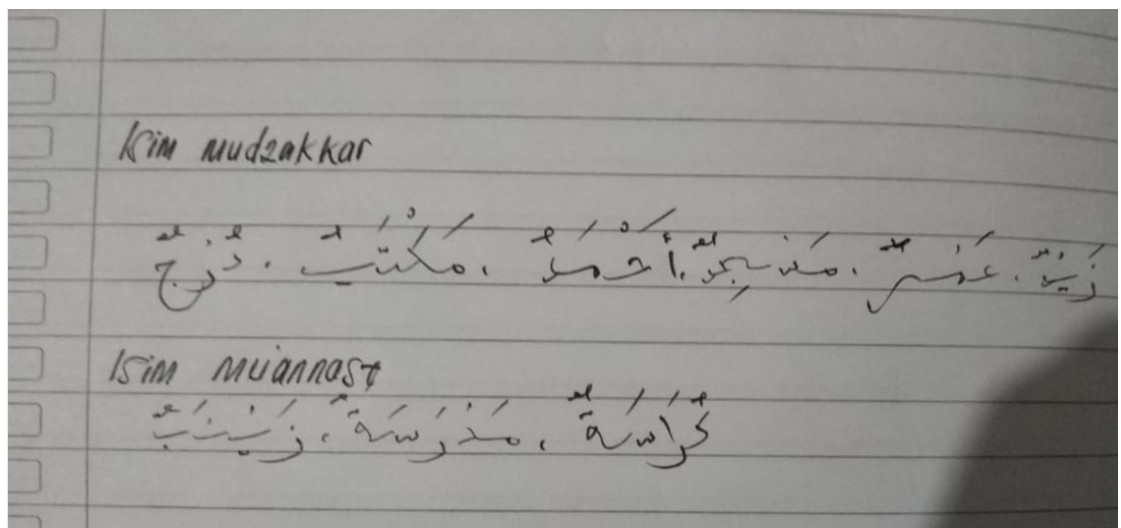 Isim mudzakkar
زَيْدٌ، عَمْرٌ، مَسْجِدٌ، أَحْمَدُ، مَكْتَبٌ، دُرْجٌ
Isim muannast
كُرَّاسَةٌ، مَدْرَسَةٌ، زَيْنَبُ